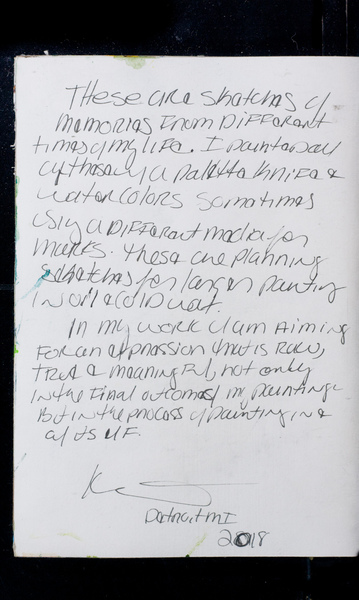 These are sketches of
memories from different
times of my life. I painted all
of these w/ a palette knife &
water colors sometimes
using a different media for
marks. These are planning
sketches for larger painting
in oil & cold wax.
In my work I am aiming
for an expression that is raw,
true & meaningful, not only
in the final outcomes in painting
but in the process of painting in &
of its elf.
Detroit MI
2018